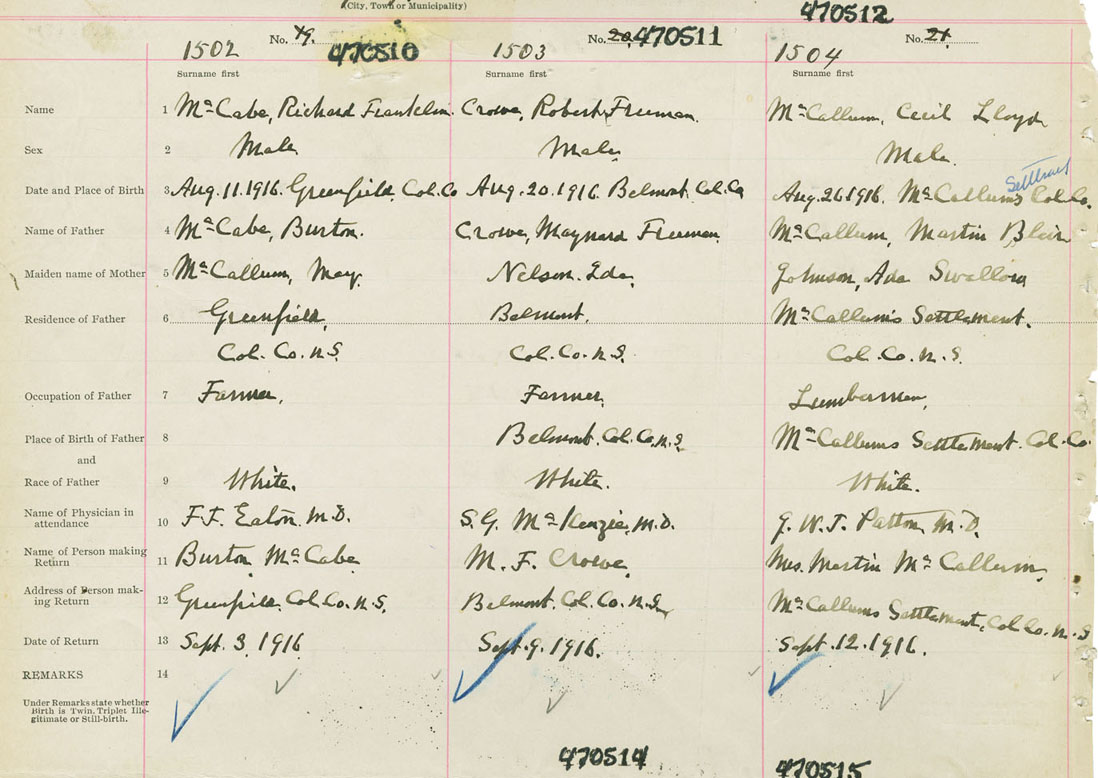 (City, Town or Municipality)
470512
1502 No. 19. 470510 1503 No. 20, 470511 1504 No. 21.
Surname first Surname first Surname first
Name 1 McCabe, Richard Franklin. Crowe, Robert Freeman. McCallum, Cecil Lloyd
Sex 2 Male Male Male.
Settlement
Date and Place of Birth 3 Aug. 11. 1916. Greenfield, Col. Co Aug. 20. 1916. Belmont. Col. Co Aug. 26 1916. McCallums Col. Co.
Name of Father 4 McCabe, Burton. Crowe, Maynard Freeman McCallum, Martin Blair
Maiden name of Mother 5 McCallum, May. Nelson. Ida. Johnson, Ada Swallow
Residence of Father 6 Greenfield, Belmont. McCallum's Settlement.
Col. Co. N.S. Col. Co. N.S. Col. Co. N.S.
Occupation of Father 7 Farmer, Farmer, Lumberman,
Place of Birth of Father 8 Belmont. Col. Co. N.S. McCallums Settlement. Col. Co.
and
Race of Father 9 White. White. White.
Name of Physician in attendance 10 F.F. Eaton, M.D. S.G. McKenzie, M.D. G. W. T. Patton, M.D.
Name of Person making Return 11 Burton McCabe M. F. Crowe, Mrs. Martin McCallum,
Address of Person mak-
ing Return 12 Greenfield. Col. Co. N.S. Belmont. Col. Co. N.S. McCallums Settlement, Col. Co. N.S
Date of Return 13 Sept. 3. 1916 Sept. 9. 1916. Sept. 12. 1916.
REMARKS 14
Under Remarks state whether
Birth is Twin. Triplet Ille-
gitimate or Still-birth.
470514 470515